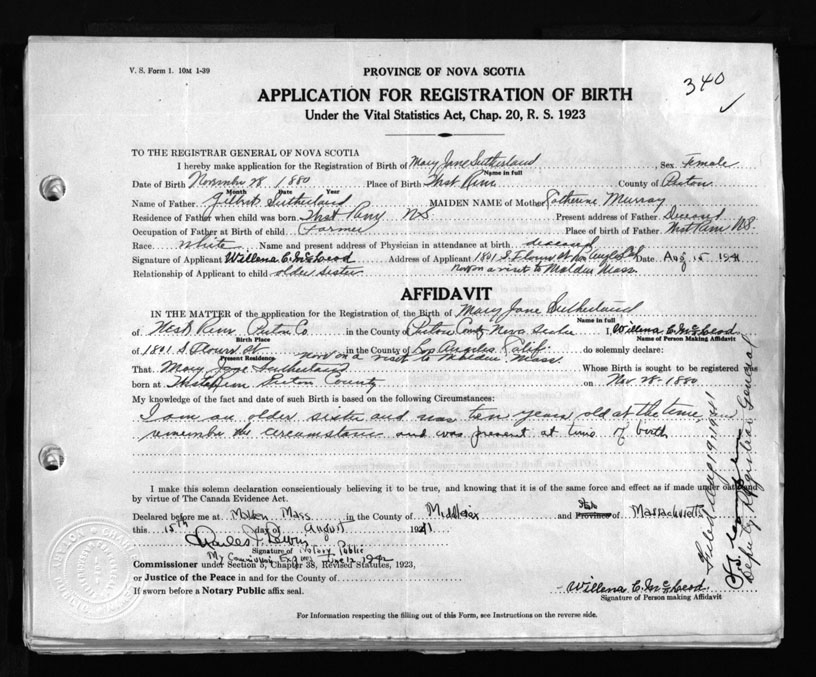 V. S. Form 1. 10M 1-39
340
PROVINCE OF NOVA SCOTIA
APPLICATION FOR REGISTRATION OF BIRTH
Under the Vital Statistics Act, Chap. 20, R. S. 1923
TO THE REGISTRAR GENERAL OF NOVA SCOTIA
I hereby make application for the Registration of Birth of Mary Jane Sutherland, Sex Female
Name in full
Date of Birth November 28, 1880 Place of Birth West River County of Pictou
Month Date Year
Name of Father Gilbert Sutherland MAIDEN NAME of Mother Catherine Murray
Residence of Father when child was born West River N.S. Present address of Father Deceased
Occupation of Father at Birth of child Farmer Place of birth of Father West River N.S.
Race white Name and present address of Physician in attendance at birth deceased
Signature of Applicant Willena C. McLeod Address of Applicant 1801 S. Flower St Los Angeles Date Aug 15 1941
Relationship of Applicant to child older sister now on a visit to Malden Mass.
AFFIDAVIT
IN THE MATTER of the application for Registration of the Birth of Mary Jane Sutherland
Name in full
of West River Pictou Co. in the County of Pictou County Nova Scotia I, Willena C. McLeod
Birth Place Name of Person Making Affidavit
of 1801 S. Flower St. in the County of Los Angeles Calif. do solemnly declare:
Present Residence now on a visit to Malden Mass.
That Mary Jane Sutherland Whose Birth is sought to be registered was
born at West River Pictou County on Nov. 28 - 1880
My knowledge of the fact and date of such Birth is based on the following Circumstances:
I am an older sister and was ten years old at the time and
remember the circumstance and was present at time of birth
I make this solemn declaration conscientiously believing it to be true, and knowing that it is of the same force and effect as if made under oath and
by virtue of The Canada Evidence Act.
Declared before me at Malden Mass in the County of Middlesex and Province of State Massachusetts
this 15th day of August 1941
Signature of Notary Public
My Commission Expires 1942
Commissioner under Section 5, Chapter 38, Revised Statutes, 1923,
or Justice of the Peace in and for the County of
If sworn before a Notary Public affix seal.
Willena C. McLeod
Signature of Person making Affidavit
For Information respecting the filling out of this Form, see Instructions on the reverse side.
Filed Aug 19, 1941
Deputy Registrar General